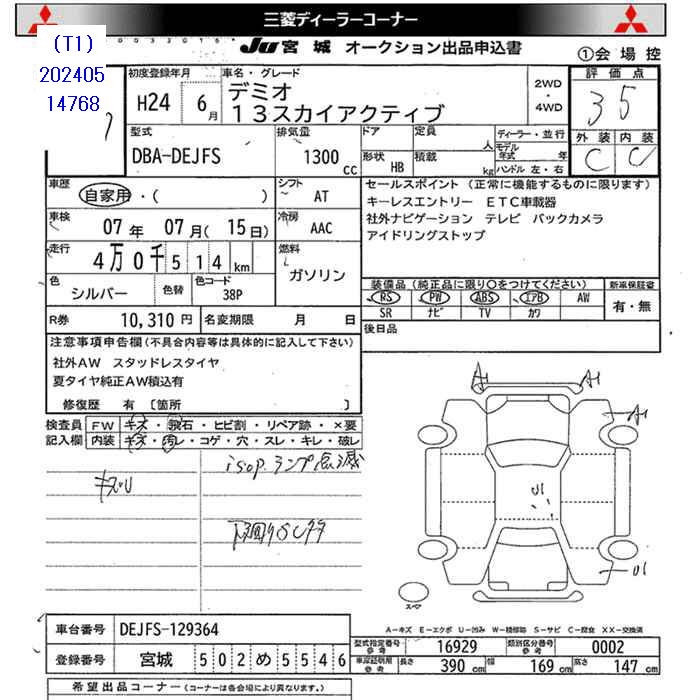 三菱ディーラーコーナー
(T1)
202405
14768
JU 宮城 オークション出品申込書
①会場控
初度登録年月
H24 6月
車名・グレード
デミオ
13スカイアクティブ
2WD
・
4WD
評価点
3.5
外装 内装
C C
型式
DBA-DEJFS
排気量
1300 cc
ドア
定員 人
形状 HB
積載 kg
ディーラー・並行
モデル年式 年
ハンドル 左・右
車歴
自家用・( )
シフト
AT
車検
07年 07月(15日)
冷房
AAC
走行
4万0千514km
燃料
ガソリン
色
シルバー
色替
色コード
38P
セールスポイント(正常に機能するものに限ります)
キーレスエントリー ETC車載器
社外ナビゲーション テレビ バックカメラ
アイドリングストップ
装備品(純正品に限り○をつけてください)
新車保証書
RS PW ABS エアB AW
SR ナビ TV カワ
有・無
R券 10,310円
名変期限 月 日
後日品
注意事項申告欄(不具合内容等は具体的に記入して下さい)
社外AW スタッドレスタイヤ
夏タイヤ純正AW積込有
修復歴 有 〔箇所 〕
検査員記入欄
FW キズ・飛石・ヒビ割・リペア跡・×要
内装 キズ・汚レ・コゲ・穴・スレ・キレ・破レ
キズU
isop.ランプ点滅
下回りSCタタ
A1 A1
A1
U1
U1
スペア
A-キズ E-エクボ U-凹み W-補修跡 S-サビ C-腐食 XX-交換済
車台番号 DEJFS-129364
登録番号 宮城 502め5546
型式指定番号 参考 16929
類別区分番号 参考 0002
車庫証明用 参考 長さ 390cm 幅 169cm 高さ 147cm
希望出品コーナー(コーナーは各会場により異なります。)